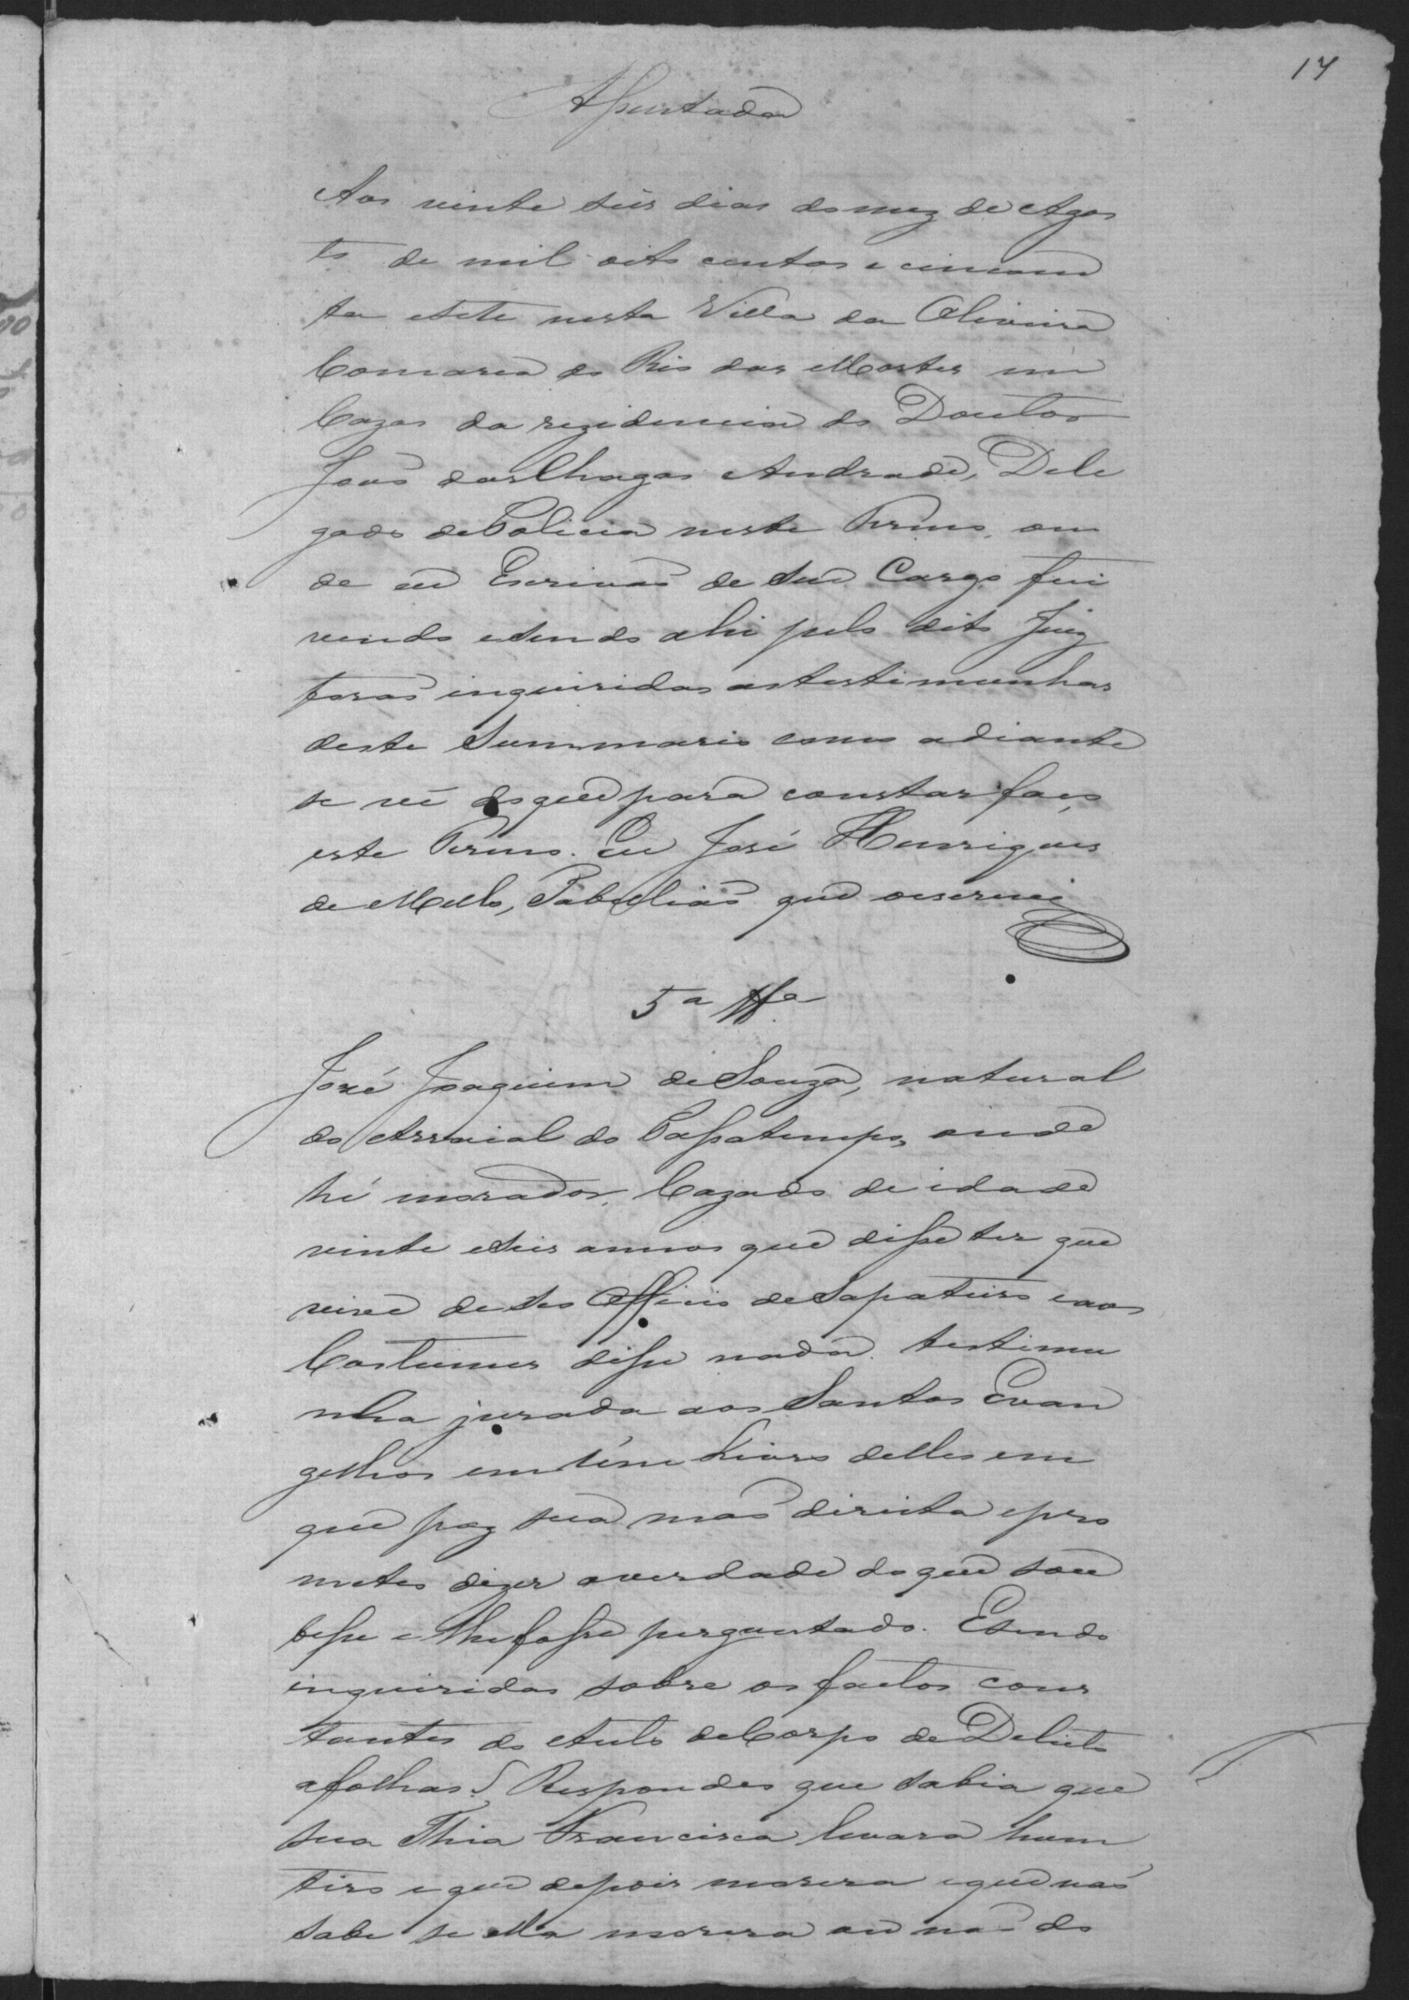 17
Assentada
Aos vinte seis dias do mez de Agos
to de mil oito centos e cincoen
ta e sete nesta Villa da Oliveira
Comarca do Rio das Mortes em
Cazas da rezidencia do Doutor
João das Chagas Andrade, Dele
gado de Policia neste Termo, on
de eu Escrivão de seu Cargo fui
vindo e sendo ahi pelo dito Juiz
forão inquiridas as testimunhas
deste Summario como adiante
se vê do que para constar faço
este Termo. Eu José Henriques
de Mello, Tabelião que o escrevi
5ª Tta
José Joaquim de Souza, natural
do Arraial do Passatempo, onde
hé morador, Cazado de idade
vinte e seis annos que disse ter que
vive de seo Officio de Sapateiro e aos
Costumes disse nada. testimu
nha jurada aos Santos Evan
gelhos em um Livro delles em
que poz sua mão direita e pro
meteo dizer a verdade do que sou
besse e lhe fosse perguntado. E sendo
inquirido sobre os factos cons
tantes do Auto de Corpo de Delicto
a folhas 5, Respondeo que sabia que
sua Thia Francisca levara hum
tiro e que depois morera e que não
sabe se ella morera ou não do